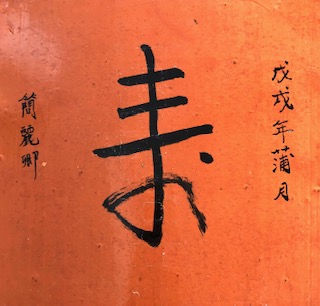 戊戌年蒲月
寿
簡麗卿